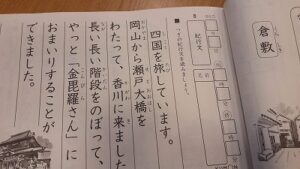 倉敷
紀行文
四国を旅しています。
岡山から瀬戸大橋を
わたって、香川に来ました
長い長い階段をのぼって、
やっと「金毘羅さん」に
おまいりすることが
できました。